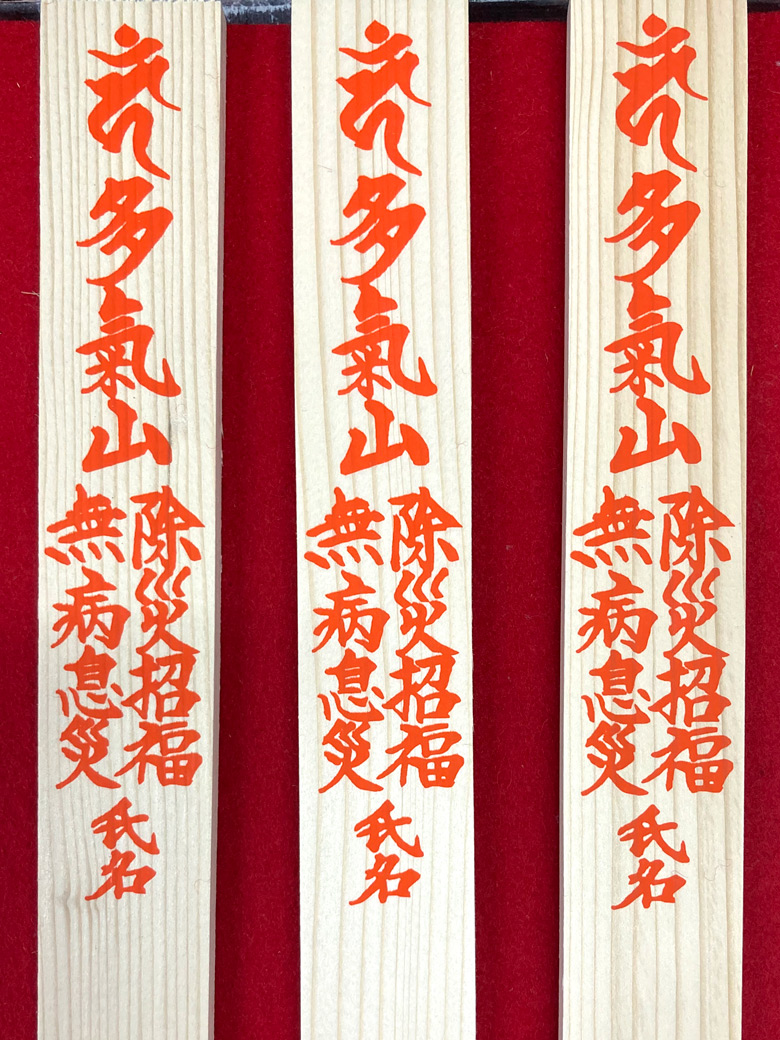 多氣山
除災招福
無病息災
氏名
多氣山
除災招福
無病息災
氏名
多氣山
除災招福
無病息災
氏名